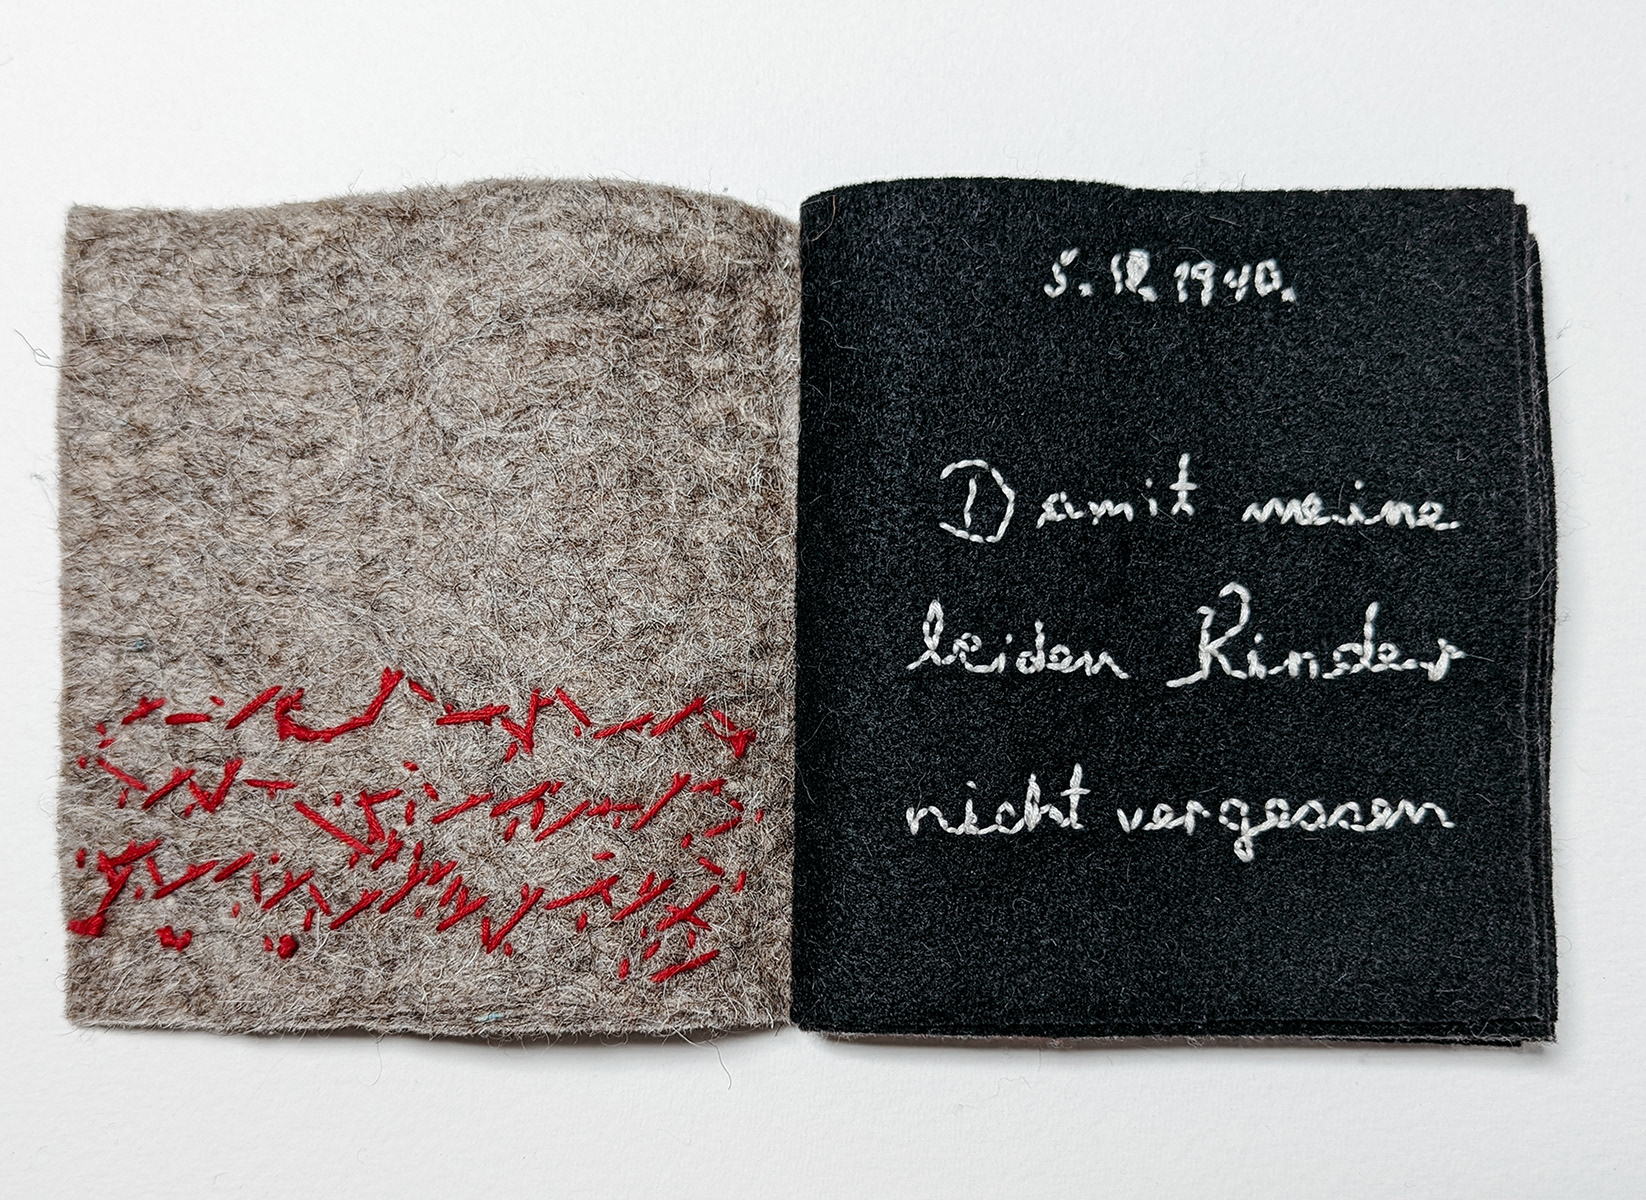 5. 1940.
Damit meine
beiden Kinder
nicht vergessen